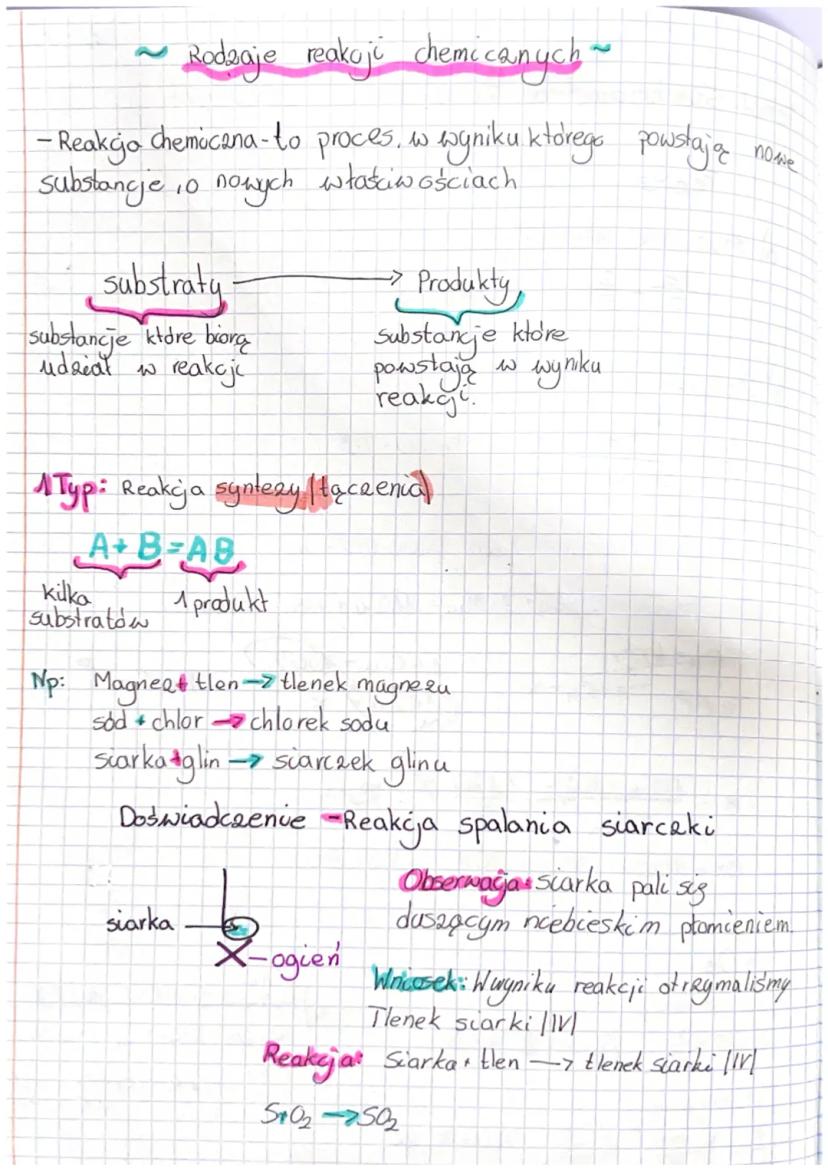 ~ Rodzaje reakcji chemicznych ~
- Reakcja chemiczna - to proces, w wyniku którego powstają nowe
substancje, o nowych właściwościach
substraty → Produkty
substancje które biorą
udział w reakcji
substancje które
powstają w wyniku
reakcji.
1 Typ: Reakcja syntezy (łączenia)
A + B = AB
kilka
substratów
1 produkt
Np: Magnez + tlen → tlenek magnezu
sód + chlor → chlorek sodu
siarka + glin → siarczek glinu
Doświadczenie - Reakcja spalania siarczki
siarka
X - ogień
Obserwacja: siarka pali się
duszącym niebieskim płomieniem.
Wniosek: W wyniku reakcji otrzymaliśmy
Tlenek siarki |IV|
Reakcja: Siarka + tlen → tlenek siarki |IV|
S+O₂ → SO₂